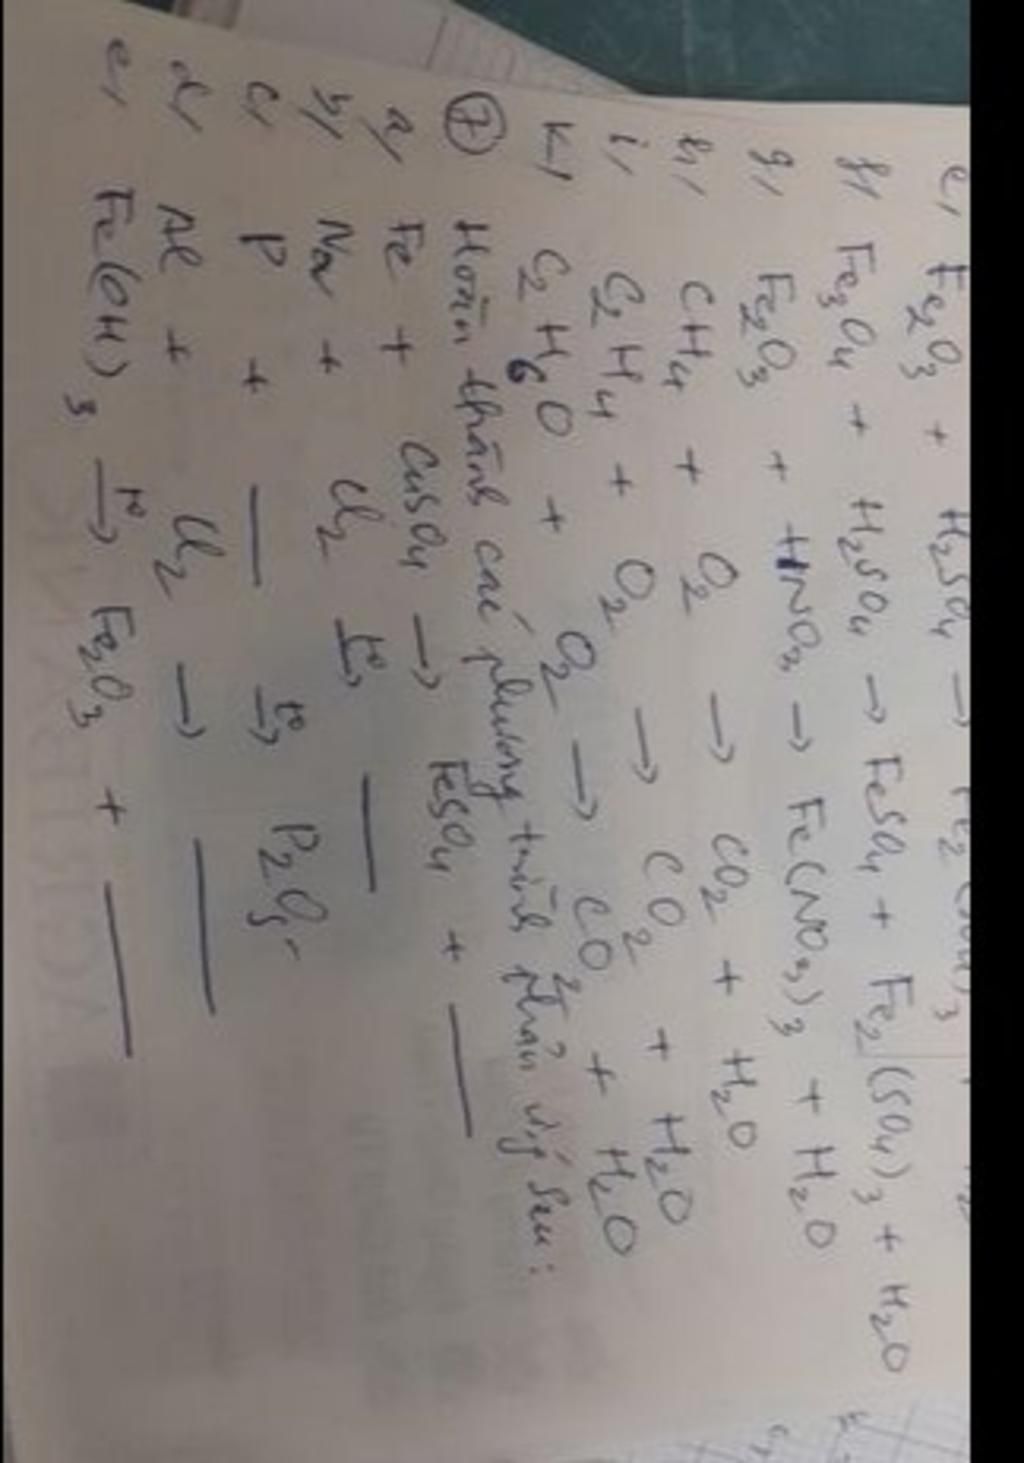 e, Fe₂O₃ + H₂SO₄ → Fe₂(SO₄)₃
f, Fe₃O₄ + H₂SO₄ → FeSO₄ + Fe₂(SO₄)₃ + H₂O
g, Fe₂O₃ + HNO₃ → Fe(NO₃)₃ + H₂O
h, CH₄ + O₂ → CO₂ + H₂O
i, C₂H₄ + O₂ → CO₂ + H₂O
k, C₂H₆O + O₂ → CO₂ + H₂O
⑦ Hoàn thành các phương trình phản ứng sau:
a, Fe + CuSO₄ → FeSO₄ + ___
b, Na + Cl₂ –t°→ ___
c, P + ___ –t°→ P₂O₅
d, Al + Cl₂ → ___
e, Fe(OH)₃ –t°→ Fe₂O₃ + ___